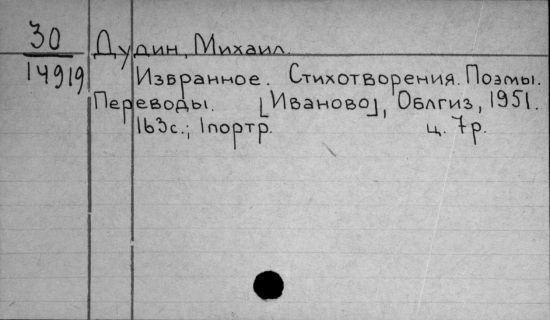 30 Дудин, Михаил.
14919 Избранное. Стихотворения. Поэмы.
Переводы. [Иваново], Облгиз, 1951.
163с.; 1портр. ц. 7р.